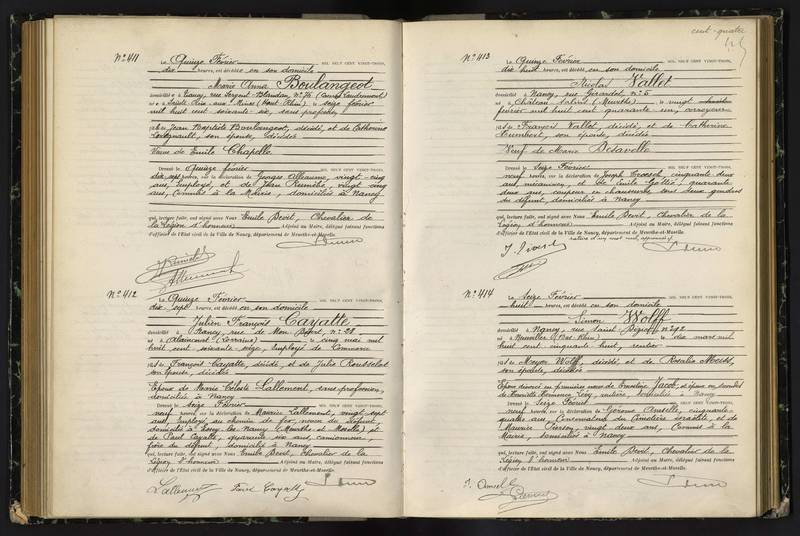 N° 411
Le Quinze Février MIL NEUF CENT VINGT-TROIS,
dix heures, est décédée en son domicile
Marie Anne Boulangeot
domiciliée à Nancy, rue Sergent Blandan, n° 76
née à Sainte Croix aux Mines (Haut Rhin) le seize février
mil huit cent soixante six, sans profession
fille de Jean Baptiste Boulangeot, décédé, et de Catherine
son épouse, décédée
Veuve de Emile Chapelle
Dressé le Quinze février MIL NEUF CENT VINGT-TROIS,
dix sept heures, sur la déclaration de Georges Alleaume, vingt-cinq
ans, Employé, et de Jean vingt cinq
ans, Commis à la Mairie, domiciliés à Nancy
qui, lecture faite, ont signé avec Nous Emile Devit, Chevalier de
la Légion d'honneur Adjoint au Maire, délégué faisant fonctions
d'officier de l'Etat civil de la Ville de Nancy, département de Meurthe-et-Moselle.
N° 412
Le Quinze Février MIL NEUF CENT VINGT-TROIS,
dix sept heures, est décédé en son domicile
Julien François Cayatte
domicilié à Nancy, rue de Mon Désert, n° 28
né à Alaincourt (Lorraine) le cinq mai mil
huit cent soixante-seize, Employé de Commerce
fils de François Cayatte, décédé, et de Julie Rousselot
son épouse, décédée
Epoux de Marie Céleste Lallement, sans profession,
domiciliée à Nancy
Dressé le Seize Février MIL NEUF CENT VINGT-TROIS,
neuf heures, sur la déclaration de Maurice Lallement, vingt sept
ans, Employé au chemin de fer, neveu du défunt,
domicilié à (Meurthe et Moselle) et
de Paul Cayatte, quarante six ans, camionneur,
frère du défunt, domicilié à Nancy
qui, lecture faite, ont signé avec Nous Emile Devit, Chevalier de la
Légion d'honneur Adjoint au Maire, délégué faisant fonctions
d'officier de l'Etat civil de la Ville de Nancy, département de Meurthe-et-Moselle.
Lallement Paul Cayatte
cent-quatre
N° 413
Le Quinze Février MIL NEUF CENT VINGT-TROIS,
dix huit heures, est décédé en son domicile
Nicolas Vallot
domicilié à Nancy, rue Girardet, n° 5
né à Château Salins (Meurthe) le vingt
février mil huit cent quarante un, corroyeur
fils de François Vallot, décédé, et de Catherine
Humbert, son épouse, décédée
Veuf de Marie Delavelle
Dressé le Seize Février MIL NEUF CENT VINGT-TROIS,
neuf heures, sur la déclaration de Joseph cinquante deux
ans, mécanicien, et de Emile quarante
deux ans, coupeur en chaussures, tous deux gendres
du défunt, domiciliés à Nancy
qui, lecture faite, ont signé avec Nous Emile Devit, Chevalier de la
Légion d'honneur Adjoint au Maire, délégué faisant fonctions
d'officier de l'Etat civil de la Ville de Nancy, département de Meurthe-et-Moselle.
N° 414
Le Seize Février MIL NEUF CENT VINGT-TROIS,
huit heures, est décédé en son domicile
Simon Wolff
domicilié à Nancy, rue Saint Dizier, n° 92
né à Neuwiller (Bas-Rhin) le dix mars mil
huit cent cinquante huit, rentier
fils de Meyer Wolff, décédé, et de Rosalie
son épouse, décédée
Epoux divorcé en premières noces de Jacob, et époux en secondes
de Henriette Hermance Lévy, rentière, domiciliée à Nancy
Dressé le Seize Février MIL NEUF CENT VINGT-TROIS,
neuf heures, sur la déclaration de Jérome Anselle, cinquante-
quatre ans, Conservateur du Cimetière israélite, et de
Maurice Pierson, vingt deux ans, Commis à la
Mairie, domiciliés à Nancy
qui, lecture faite, ont signé avec Nous Emile Devit, Chevalier de la
Légion d'honneur Adjoint au Maire, délégué faisant fonctions
d'officier de l'Etat civil de la Ville de Nancy, département de Meurthe-et-Moselle.